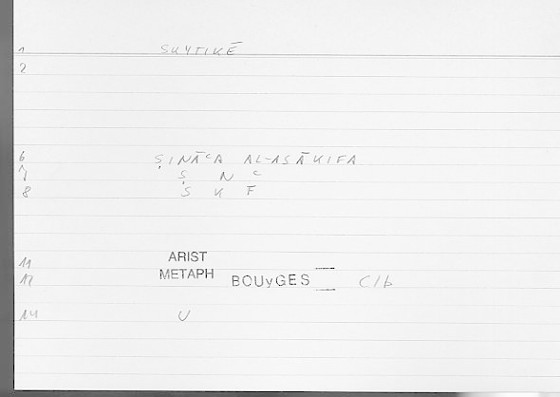 1 SKYTIKĒ
2
6 ṢINĀᶜA AL-ASĀKIFA
7 Ṣ N ᶜ
8 S K F
ARIST
11
METAPH
12 BOUyGES C/b
14 U